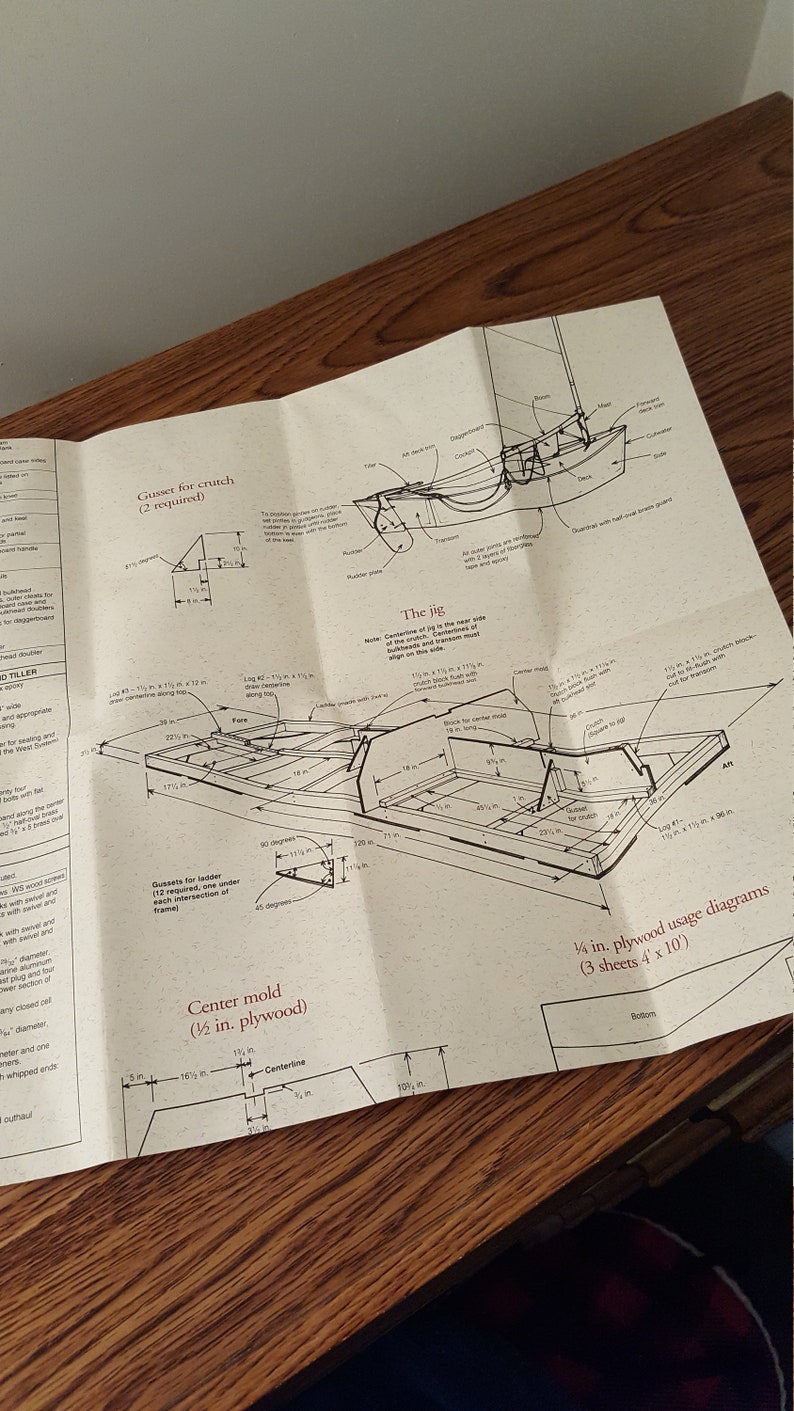 oard case sides
listed on
knee
and keel
or partial
board handle
bulkhead
, outer cleats for
board case and
bulkhead doublers
for daggerboard
head doubler
ID TILLER
epoxy
wide
and appropriate
er for sealing and
the West System)
enty four
bolts with flat
band along the center
½" half-oval brass
x 5 brass oval
uted.
WS wood screws
ks with swivel and
s with swivel and
k with swivel and
with swivel and
diameter,
arine aluminum
ast plug and four
ower section of
any closed cell
diameter,
meter and one
eners.
h whipped ends:
outhaul
Gusset for crutch
(2 required)
51½ degrees
10 in.
2½ in.
1½ in.
8 in.
To position pintles on rudder,
set pintles in gudgeons, place
rudder in pintles until rudder
bottom is even with the bottom
of the keel.
Tiller
Aft deck trim
Daggerboard
Cockpit
Boom
Mast
Forward
deck trim
Cutwater
Side
Deck
Guardrail with half-oval brass guard
Transom
Rudder
Rudder plate
All outer joints are reinforced
with 2 layers of fiberglass
tape and epoxy
The jig
Note: Centerline of jig is the near side
of the crutch. Centerlines of
bulkheads and transom must
align on this side.
Log #3 – 1½ in. x 1½ in. x 12 in.
draw centerline along top
Log #2 – 1½ in. x 1½ in.
draw centerline
along top
Ladder (made with 2x4's)
1½ in. x 1½ in. x 11⅛ in.
crutch block flush with
forward bulkhead slot
Center mold
1½ in. x 1½ in. x 11⅛ in.
crutch block flush with
aft bulkhead slot
1½ in. x 1½ in. crutch block–
cut to fit–flush with
cut for transom
39 in.
Fore
22½ in.
3½ in.
17¼ in.
18 in.
Block for center mold
19 in. long
96 in.
Crutch
(Square to jig)
18 in.
9⅝ in.
5½ in.
Aft
½ in.
45¼ in.
1 in.
Gusset
for crutch
23¼ in.
18 in.
36 in.
Log #1–
1½ in. x 1½ in. x 96 in.
71 in.
120 in.
90 degrees
11⅛ in.
11⅛ in.
45 degrees
Gussets for ladder
(12 required, one under
each intersection of
frame)
¼ in. plywood usage diagrams
(3 sheets 4' x 10')
Bottom
Center mold
(½ in. plywood)
5 in.
16½ in.
1¾ in.
Centerline
¾ in.
3½ in.
10¾ in.